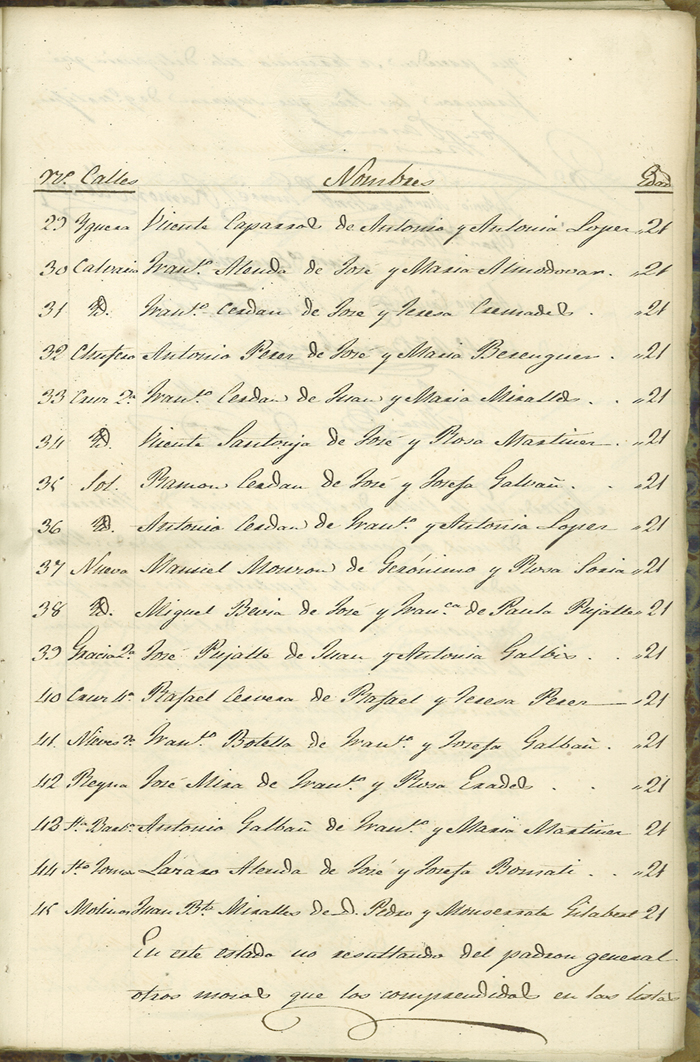 Nº Calles Nombres Edad
29 Yguera Vicente Caparros de Antonio y Antonia Lopez „21
30 Calvario Franco. Alenda de José y Maria Almodovar. „21
31 Yd. Franco. Cerdan de José y Teresa Cremades . „21
32 Antonio Perez de José y Maria Berenguer . „21
33 Cruz 2a. Franco. Cerdan de Juan y Maria Miralles . . „21
34 Yd. Vicente Santonja de José y Rosa Martinez . „21
35 Sol. Ramon Cerdan de José y Josefa Galvañ . . „21
36 Yd. Antonio Cerdan de Franco. y Antonia Lopez „21
37 Nueva Manuel Monzon de Gerónimo y Rosa Soria „21
38 Yd. Miguel Bevia de José y Franca. de Paula Pujalte „21
39 Gracia 2a. José Pujalte de Juan y Antonia Galbis . . „21
40 Cruz 4a. Rafael Cervera de Rafael y Teresa Perez „21
41. Nieves Franco. Botella de Franco. y Josefa Galbañ . „21
42 Reyna José Mira de Franco. y Rosa Erades . . „21
43 Sta. Barba. Antonio Galbañ de Franco. y Maria Martinez 21
44 Sto. Lazaro Alenda de José y Josefa Bonmati . . „21
45 Molinos Juan Bta. Miralles de D. Pedro y Monserrata Gilabert 21
En este estado no resultando del padron general
otros mozos que los comprendidos en las listas